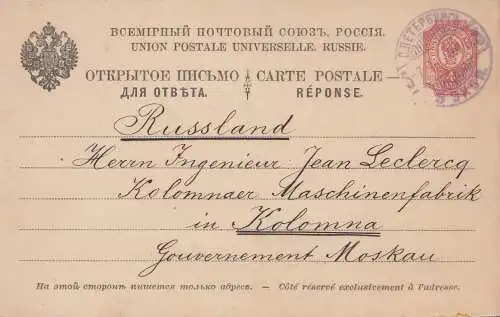 ВСЕМІРНЫЙ ПОЧТОВЫЙ СОЮЗЪ. РОССІЯ.
UNION POSTALE UNIVERSELLE. RUSSIE.
ОТКРЫТОЕ ПИСЬМО CARTE POSTALE
ДЛЯ ОТВѢТА. RÉPONSE.
С.ПЕТЕРБУРГЪ
Russland
Herrn Ingenieur Jean Leclercq
Kolomnaer Maschinenfabrik
in Kolomna
Gouvernement Moskau
На этой сторонѣ пишется только адресъ. — Côté réservé exclusivement à l'adresse.